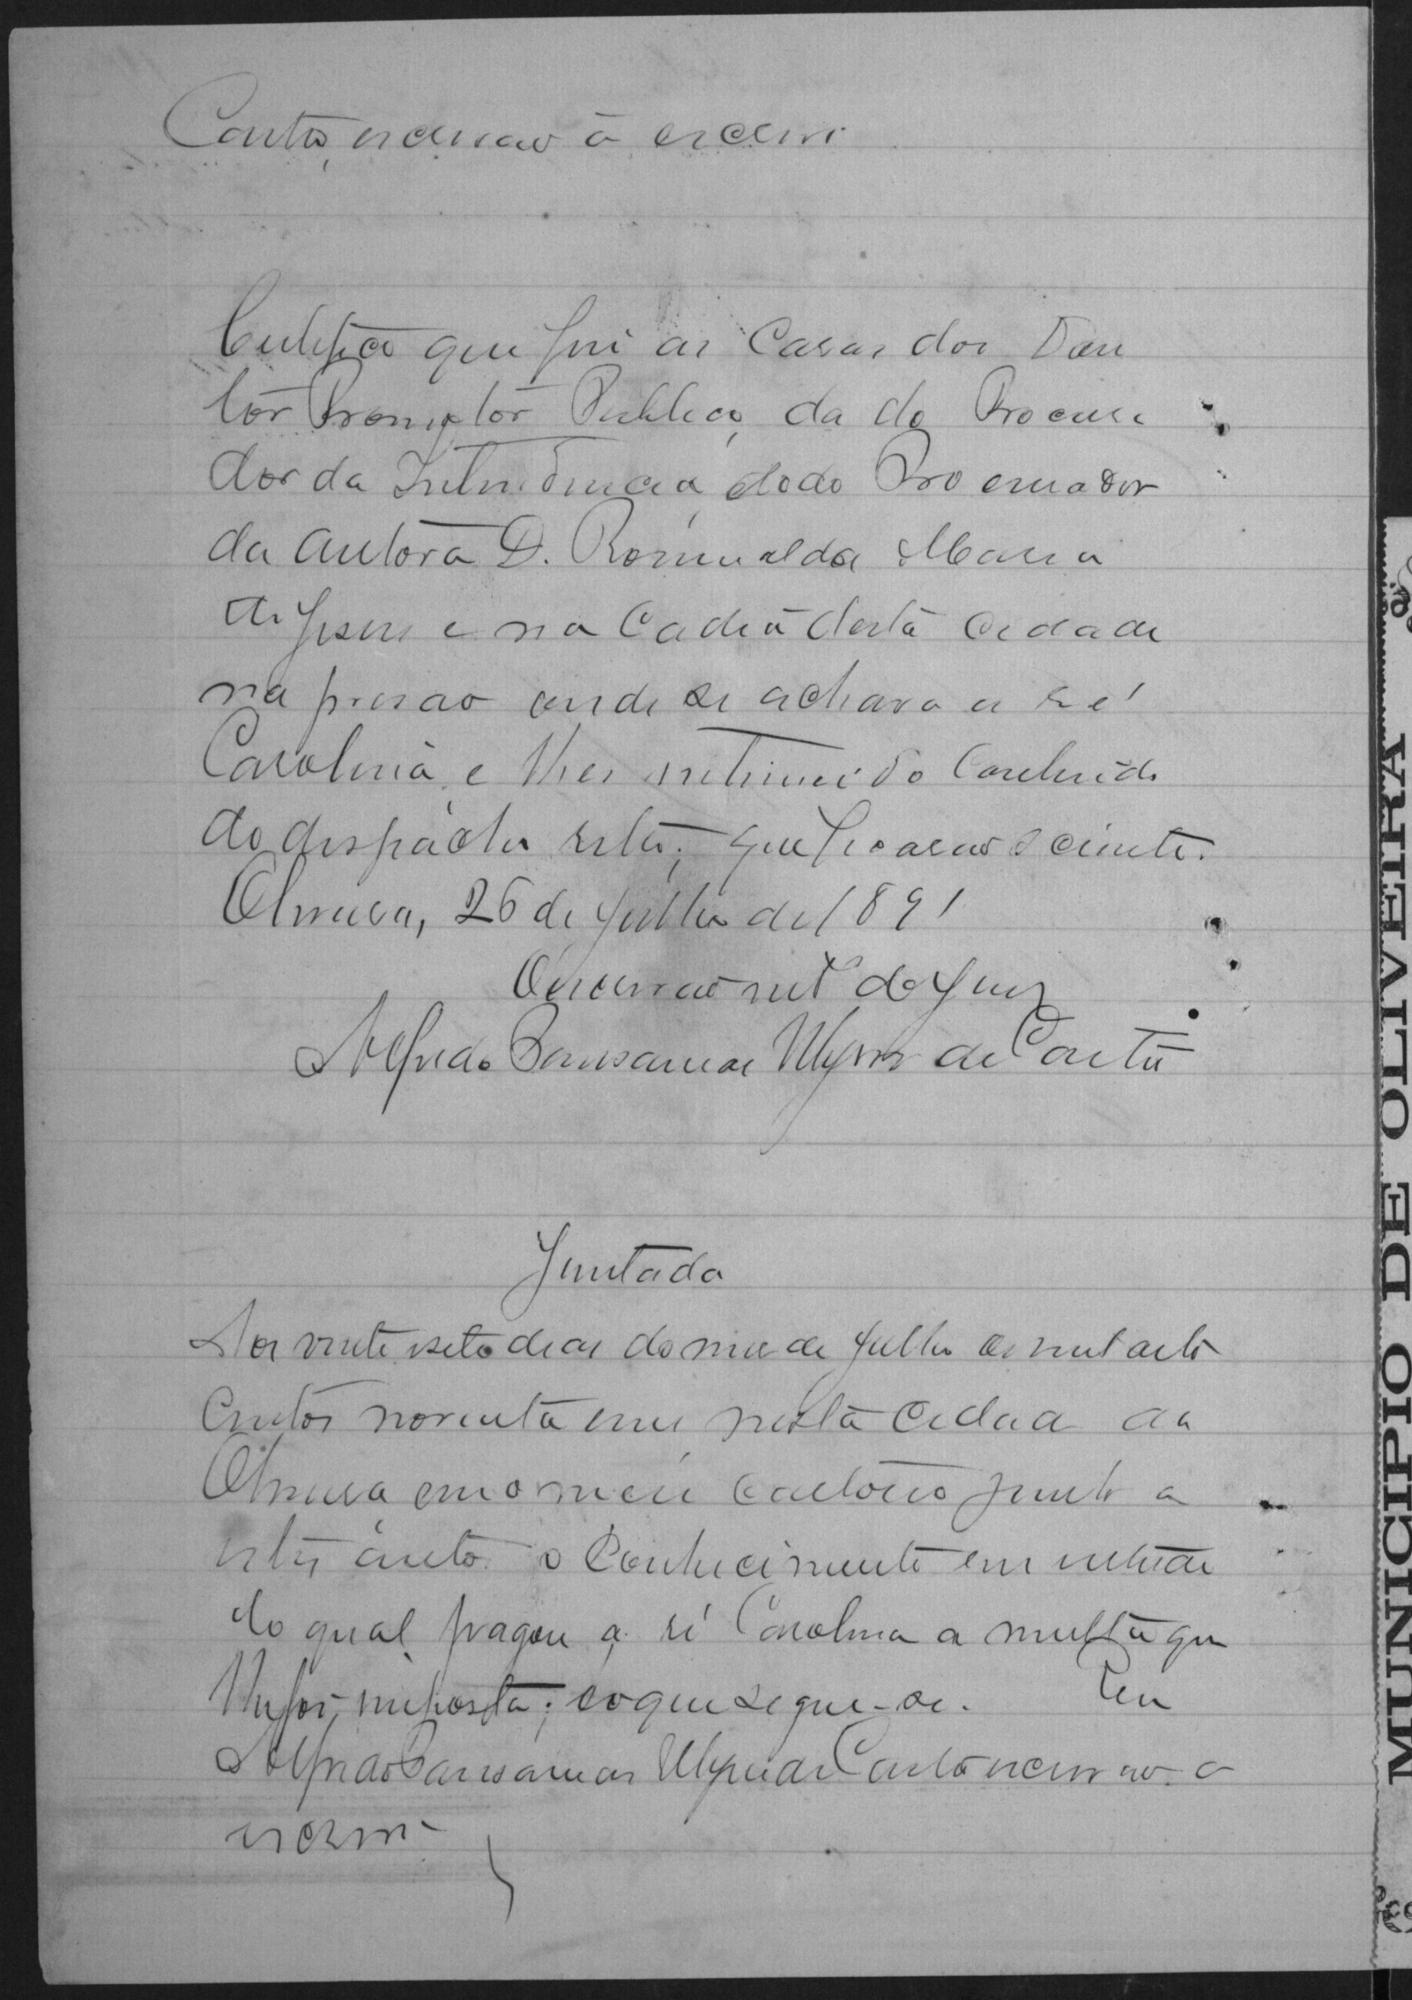 Couto, escrivão o escrevi
Certifico que fui as Casas dos Dou
tor Promotor Publico, da do Procura
dor da Intendencia, do do Procurador
da autora D. Romualda Maria
de Jesus e na Cadeia desta cidade
na prisão onde se achava a ré
Carolina e lhes intimei do Conteudo
do despacho retro; que ficarão sciente.
Oliveira, 26 de Julho de 1891
O escrivão int.º do Jury
Alfredo Ulysses de Couto
Juntada
Aos vinte sete dias do mez de Julho de mil oito
centos noventa e um nesta cidade da
Oliveira em o meu cartorio junto a
estes autos o Conhecimento em virtude
do qual pagou a ré Carolina a multa que
lhe foi imposta; e o que segue-se. Eu
Alfredo Ulysses de Couto escrivão o
escrevi
MUNICIPIO DE OLIVEIRA